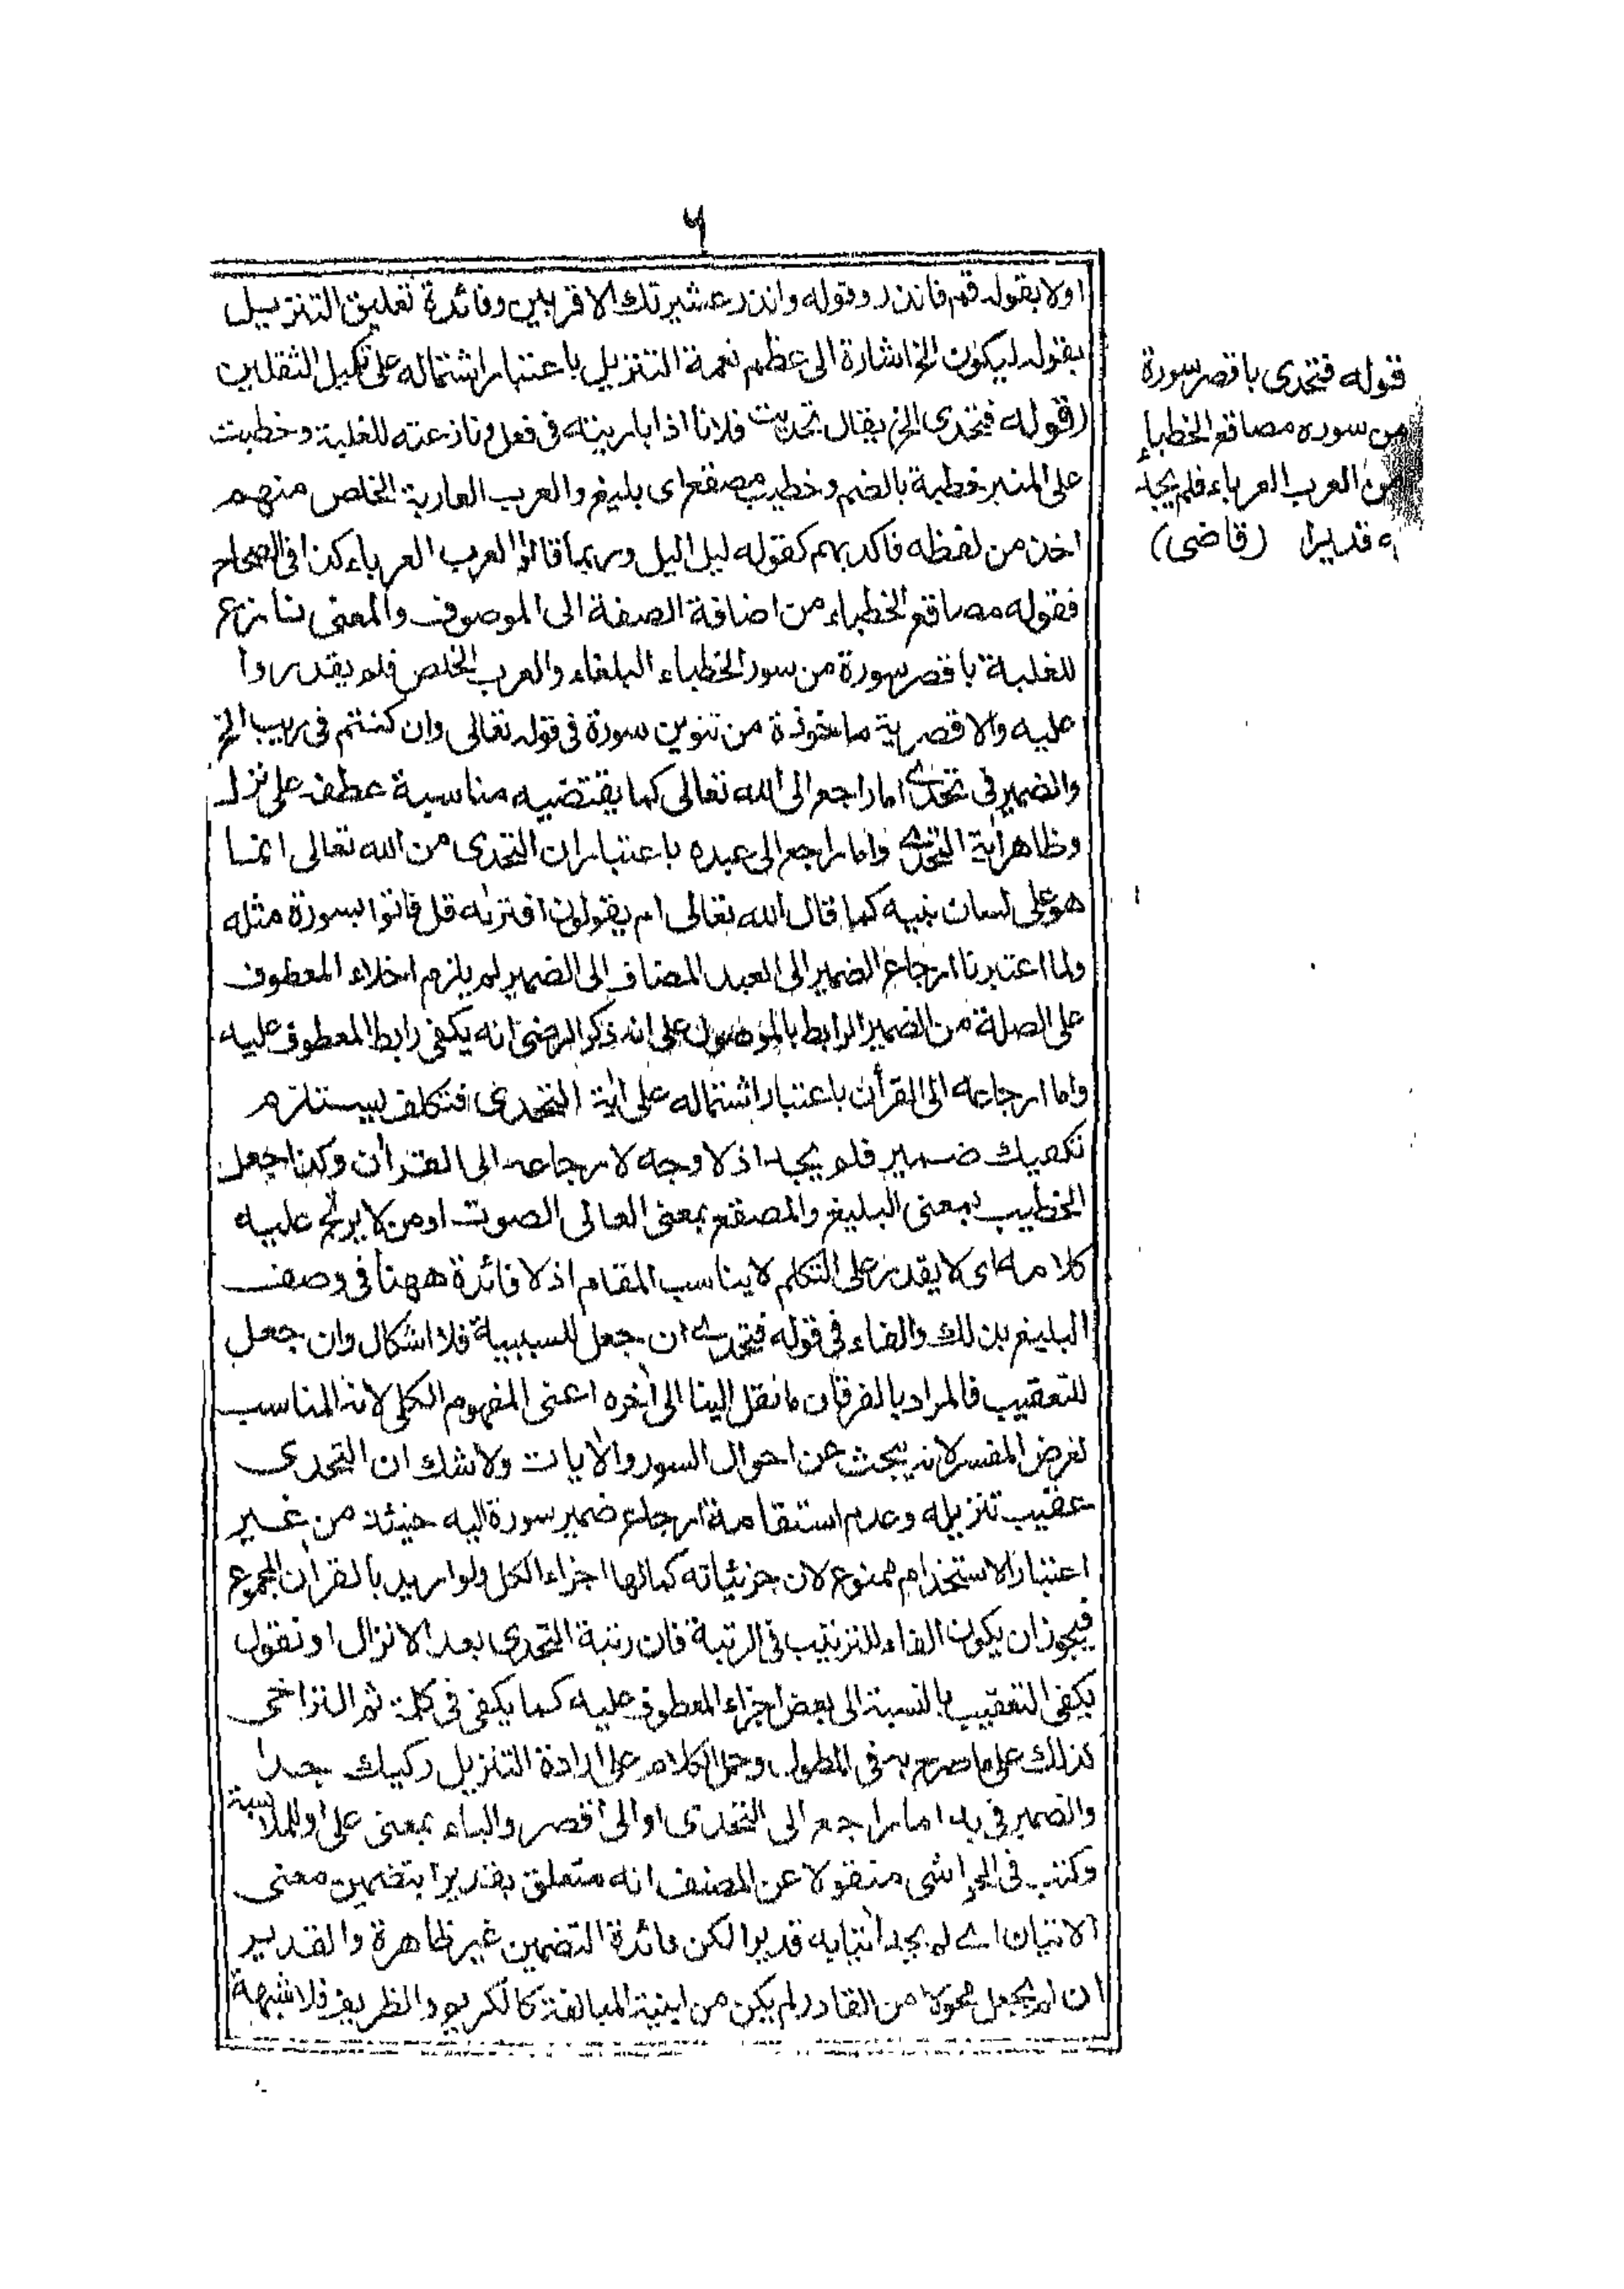 ٦
اولا بقوله قم فانذر وقوله وانذر عشيرتك الاقربين وفائدة تعليق التنزيل
بقوله ليكون الخ اشارة الى عظم نعمة التنزيل باعتبار اشتماله على تكميل الثقلين
(قوله فتحدى الخ) يقال تحديت فلانا اذا باريته في فعل ونازعته للغلبة وخطبت
على المنبر خطبة بالضم وخطيب مصقع اى بليغ والعرب العاربة الخلص منهم
اخذ من لفظه فاكد بهم كقوله ليل اليل وربما قالوا العرب العرباء كذا فى الصحاح
فقوله مصاقع الخطباء من اضافة الصفة الى الموصوف والمعنى نازع
للغلبة باقصر سورة من سور الخطباء البلغاء والعرب الخلص فلم يقدروا
عليه والاقصرية ماخوذة من تنوين سورة فى قوله تعالى وان كنتم فى ريب الخ
والضمير فى تحدى اما راجع الى الله تعالى كما يقتضيه مناسبة عطفه على نزل
وظاهر اية التحدى واما راجع الى عبده باعتبار ان التحدى من الله تعالى انما
هو على لسان نبيه كما قال الله تعالى ام يقولون افتراه قل فاتوا بسورة مثله
ولما اعتبرنا ارجاع الضمير الى العبد المضاف الى الضمير لم يلزم اخلاء المعطوف
على الصلة من الضمير الرابط بالموصول على انه ذكر الرضى انه يكفى رابط المعطوف عليه
واما ارجاعه الى القرأن باعتبار اشتماله على اية التحدى فتكلف يستلزم
تفكيك ضمير فلم يجد اذ لا وجه لارجاعه الى القرأن وكذا جعل
الخطيب بمعنى البليغ والمصقع بمعنى العالى الصوت او من لا يرتج عليه
كلامه اى لا يقدر على التكلم لا يناسب المقام اذ لا فائدة ههنا فى وصف
البليغ بذلك والفاء فى قوله فتحدى ان جعل للسببية فلا اشكال وان جعل
للتعقيب فالمراد بالفرقان ما نقل الينا الى أخره اعنى المفهوم الكلى لانه المناسب
لغرض المفسر لانه يبحث عن احوال السور والأيات ولا شك ان التحدى
عقيب تنزيله وعدم استقامة ارجاع ضمير سورة اليه حينئذ من غير
اعتبار الاستخدام ممنوع لان جزئياته كما لها اجزاء الكل ولو اريد بالقرأن المجموع
فيجوز ان يكون الفاء للترتيب فى الرتبة فان رتبة التحدى بعد الانزال او نقول
يكفى التعقيب بالنسبة الى بعض اجزاء المعطوف عليه كما يكفى فى كلمة ثم التراخى
كذلك على ما صرح به فى المطول وحمل الكلام على ارادة التنزيل ركيك جدا
والضمير فى به اما راجع الى التحدى او الى اقصر والباء بمعنى على او للملابسة
وكتب فى الحواشى منقولا عن المصنف انه متعلق بقديرا بتضمين معنى
الاتيان اى لم يجد أتيا به قديرا لكن فائدة التضمين غير ظاهرة والقدير
ان لم يجعل محولا من القادر لم يكن من ابنية المبالغة كالكريم والظريف فلا شبهة
قوله فتحدى باقصر سورة
من سوره مصاقع الخطباء
من العرب العرباء فلم يجد
به قديرا (قاضى)